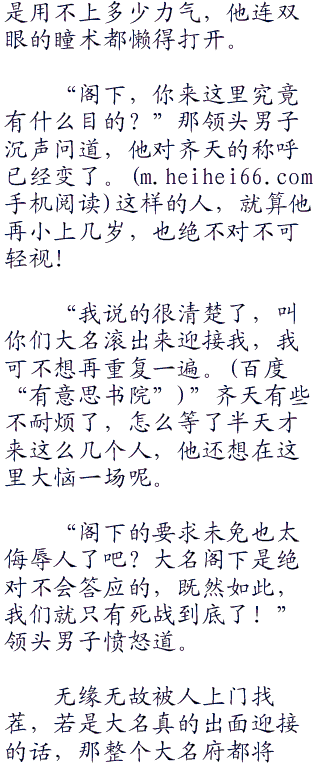 是用不上多少力气，他连双
眼的瞳术都懒得打开。
“阁下，你来这里究竟
有什么目的？”那领头男子
沉声问道，他对齐天的称呼
已经变了。(m.heihei66.com
手机阅读)这样的人，就算他
再小上几岁，也绝不对不可
轻视！
“我说的很清楚了，叫
你们大名滚出来迎接我，我
可不想再重复一遍。(百度
“有意思书院”)”齐天有些
不耐烦了，怎么等了半天才
来这么几个人，他还想在这
里大恼一场呢。
“阁下的要求未免也太
侮辱人了吧？大名阁下是绝
对不会答应的，既然如此，
我们就只有死战到底了！”
领头男子愤怒道。
无缘无故被人上门找
茬，若是大名真的出面迎接
的话，那整个大名府都将